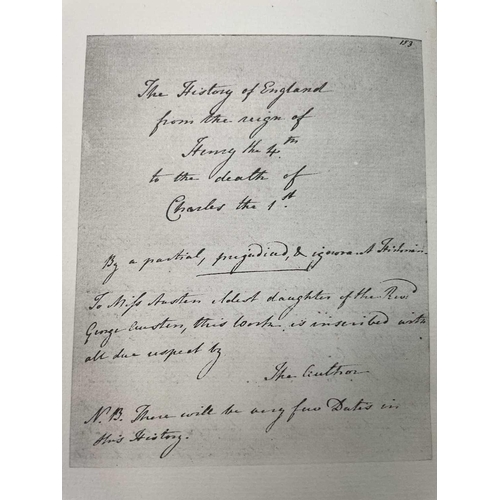 153
The History of England
from the reign of
Henry the 4th
to the death of
Charles the 1st.
By a partial, prejudiced, & ignorant Historian.
To Miss Austen eldest daughter of the Revd
George Austen, this work is inscribed with
all due respect by
The Author
N.B. There will be very few Dates in
this History.